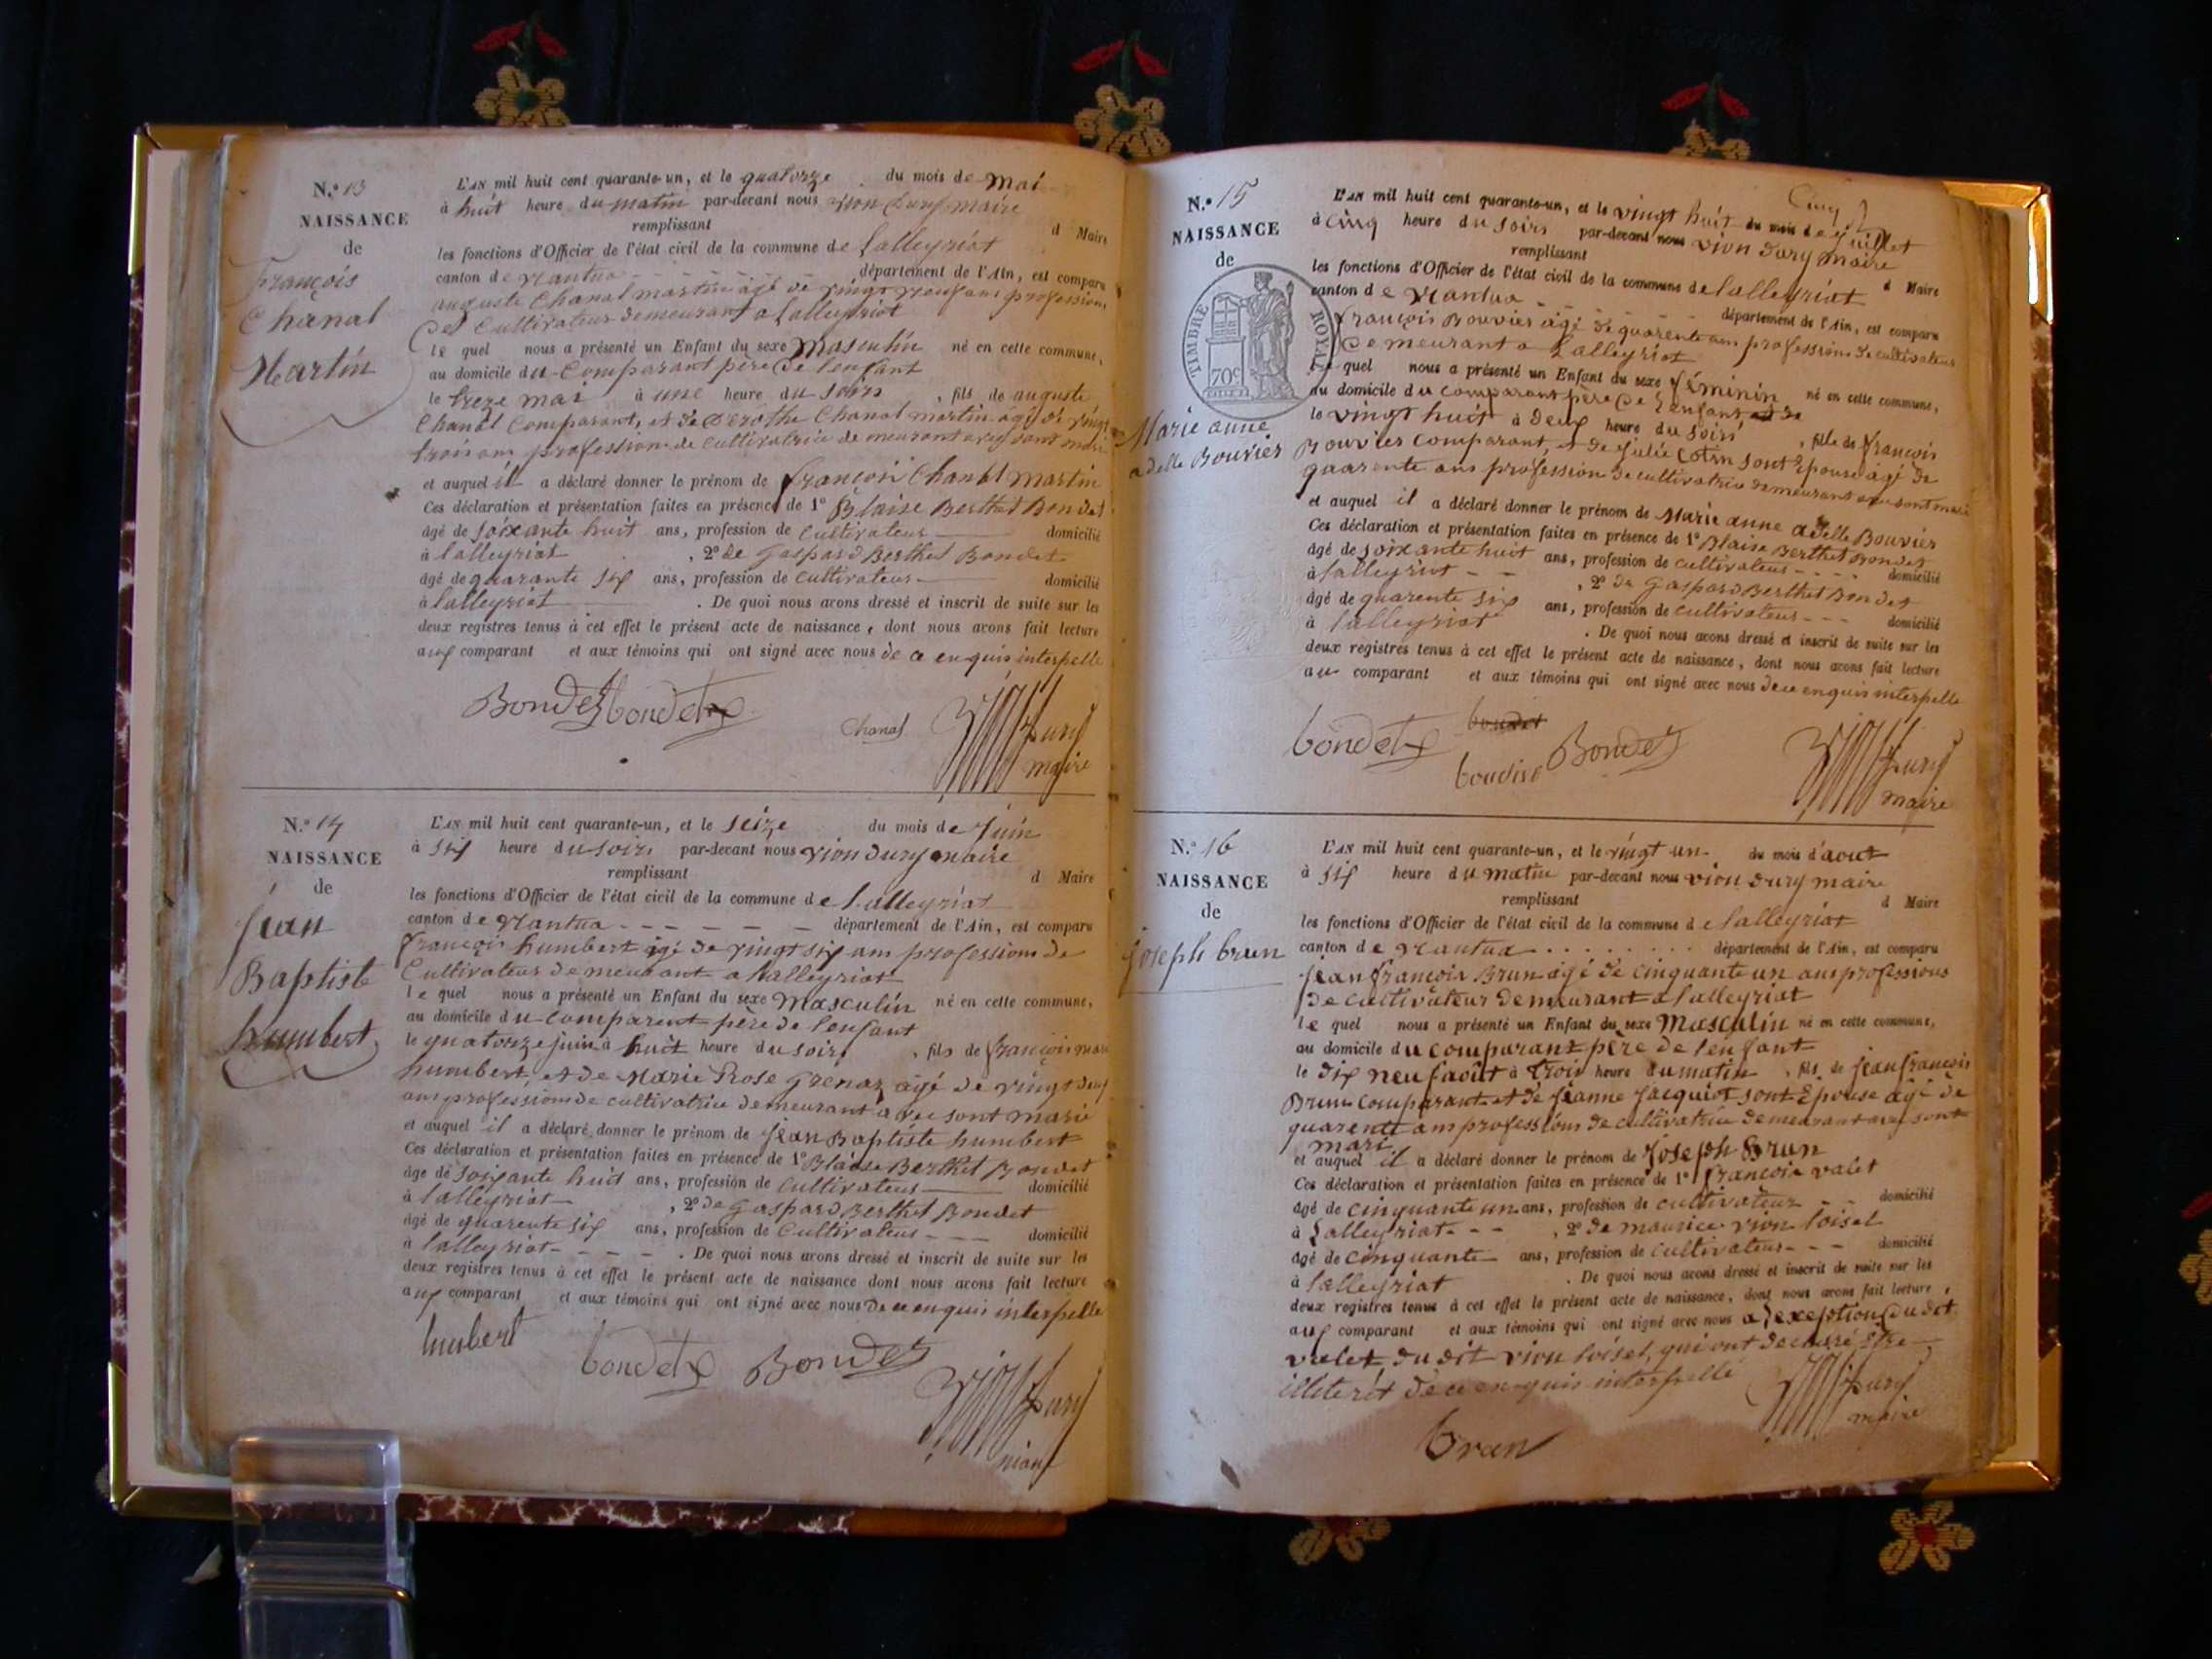 N.° 13
NAISSANCE
de
François
Chanal
Martin
L'AN mil huit cent quarante-un, et le quatorze du mois de mai
à huit heure du matin par-devant nous vion Dury maire
remplissant d Maire
les fonctions d'Officier de l'état civil de la commune de lalleyriat
canton de Nantua département de l'Ain, est comparu
auguste Chanal martin âgé de vingt neuf ans profession
de Cultivateur demeurant a lalleyriat
le quel nous a présenté un Enfant du sexe masculin né en cette commune,
au domicile du Comparant père de lenfant
le treze mai à une heure du soir , fils de auguste
Chanal Comparant, et de Chanal martin âgé de vingt
trois ans profession de cultivatrice demeurant avec sont mari
et auquel il a déclaré donner le prénom de françois Chanal martin
Ces déclaration et présentation faites en présence de 1° Blaise Berthet Bondet
âgé de soixante huit ans, profession de Cultivateur domicilié
à lalleyriat , 2° de Gaspard Berthet Bondet
âgé de quarante six ans, profession de cultivateur domicilié
à lalleyriat . De quoi nous avons dressé et inscrit de suite sur les
deux registres tenus à cet effet le présent acte de naissance, dont nous avons fait lecture
aux comparant et aux témoins qui ont signé avec nous de ce enquis interpelle
Bondet bondet
Chanal Dury
maire
N.° 14
NAISSANCE
de
Jean
Baptiste
humbert
L'AN mil huit cent quarante-un, et le seize du mois de Juin
à six heure du soir par-devant nous vion Dury maire
remplissant d Maire
les fonctions d'Officier de l'état civil de la commune de lalleyriat
canton de Nantua - - - - - - département de l'Ain, est comparu
françois humbert âgé de vingt six ans profession de
Cultivateur demeurant a lalleyriat
le quel nous a présenté un Enfant du sexe Masculin né en cette commune,
au domicile du comparent père de lenfant
le quatorze juin à huit heure du soir , fils de françois
humbert, et de Marie Rose Grenaz âgé de vingt deux
ans profession de cultivatrice demeurant avec sont marie
et auquel il a déclaré donner le prénom de Jean Baptiste humbert
Ces déclaration et présentation faites en présence de 1° Blaise Berthet Bondet
âge de soixante huit ans, profession de Cultivateur domicilié
à lalleyriat , 2° de Gaspard Berthet Bondet
âgé de quarente six ans, profession de Cultivateur - - - domicilié
à lalleyriat - - - - . De quoi nous avons dressé et inscrit de suite sur les
deux registres tenus à cet effet le présent acte de naissance dont nous avons fait lecture
aux comparant et aux témoins qui ont signé avec nous de ce enquis interpelle
humbert bondet Bondet
Dury
N.° 15
NAISSANCE
de
TIMBRE ROYAL
70c
Marie anne
adelle Bouvier
Cinq
L'AN mil huit cent quarante-un, et le vingt huit du mois de Juillet
à cinq heure du soir par-devant nous vion Dury maire
remplissant d Maire
les fonctions d'Officier de l'état civil de la commune de lalleyriat
canton de Nantua département de l'Ain, est comparu
françois Bouvier âgé de quarente ans profession de cultivateur
demeurant a Lalleyriat
le quel nous a présenté un Enfant du sexe féminin né en cette commune,
au domicile du comparant père de lenfant
le vingt huit à deux heure du soir , fille de françois
Bouvier Comparant, et de Julie Cotin sont Epouse âgé de
quarente ans profession de cultivatrice demeurant avec sont mari
et auquel il a déclaré donner le prénom de Marie anne adelle Bouvier
Ces déclaration et présentation faites en présence de 1° Blaise Berthet Bondet
âgé de soixante huit ans, profession de Cultivateur - - - - domicilié
à lalleyriat - - , 2° de Gaspard Berthet Bondet
âgé de quarente six ans, profession de cultivateur - - - domicilié
à lalleyriat . De quoi nous avons dressé et inscrit de suite sur les
deux registres tenus à cet effet le présent acte de naissance, dont nous avons fait lecture
au comparant et aux témoins qui ont signé avec nous de ce enquis interpelle
bondet Bondet
Dury
maire
N.° 16
NAISSANCE
de
joseph brun
L'AN mil huit cent quarante-un, et le vingt un du mois d'aout
à six heure du matin par-devant nous vion Dury maire
remplissant d Maire
les fonctions d'Officier de l'état civil de la commune de lalleyriat
canton de Nantua . . . . . . . . département de l'Ain, est comparu
jean françois Brun âgé de cinquante un ans profession
de cultivateur demeurant a lalleyriat
le quel nous a présenté un Enfant du sexe Masculin né en cette commune,
au domicile du comparant père de lenfant
le dix neuf août à trois heure du matin , fils de jean françois
Brun comparant et de jeanne Jacquiot sont Epouse âgé de
quarente ans profession de cultivatrice demeurant avec sont
mari
et auquel il a déclaré donner le prénom de Joseph Brun
Ces déclaration et présentation faites en présence de 1° françois valet
âgé de cinquante un ans, profession de cultivateur - - domicilié
à Lalleyriat - - , 2° de maurice vion loisel
âgé de cinquante ans, profession de Cultivateur - - - domicilié
à lalleyriat . De quoi nous avons dressé et inscrit de suite sur les
deux registres tenus à cet effet le présent acte de naissance, dont nous avons fait lecture,
aux comparant et aux témoins qui ont signé avec nous a lexeption du dit
valet du dit vion loisel, qui ont declaré Etre
illiterét de ce enquis interpellé
Dury
maire
brun